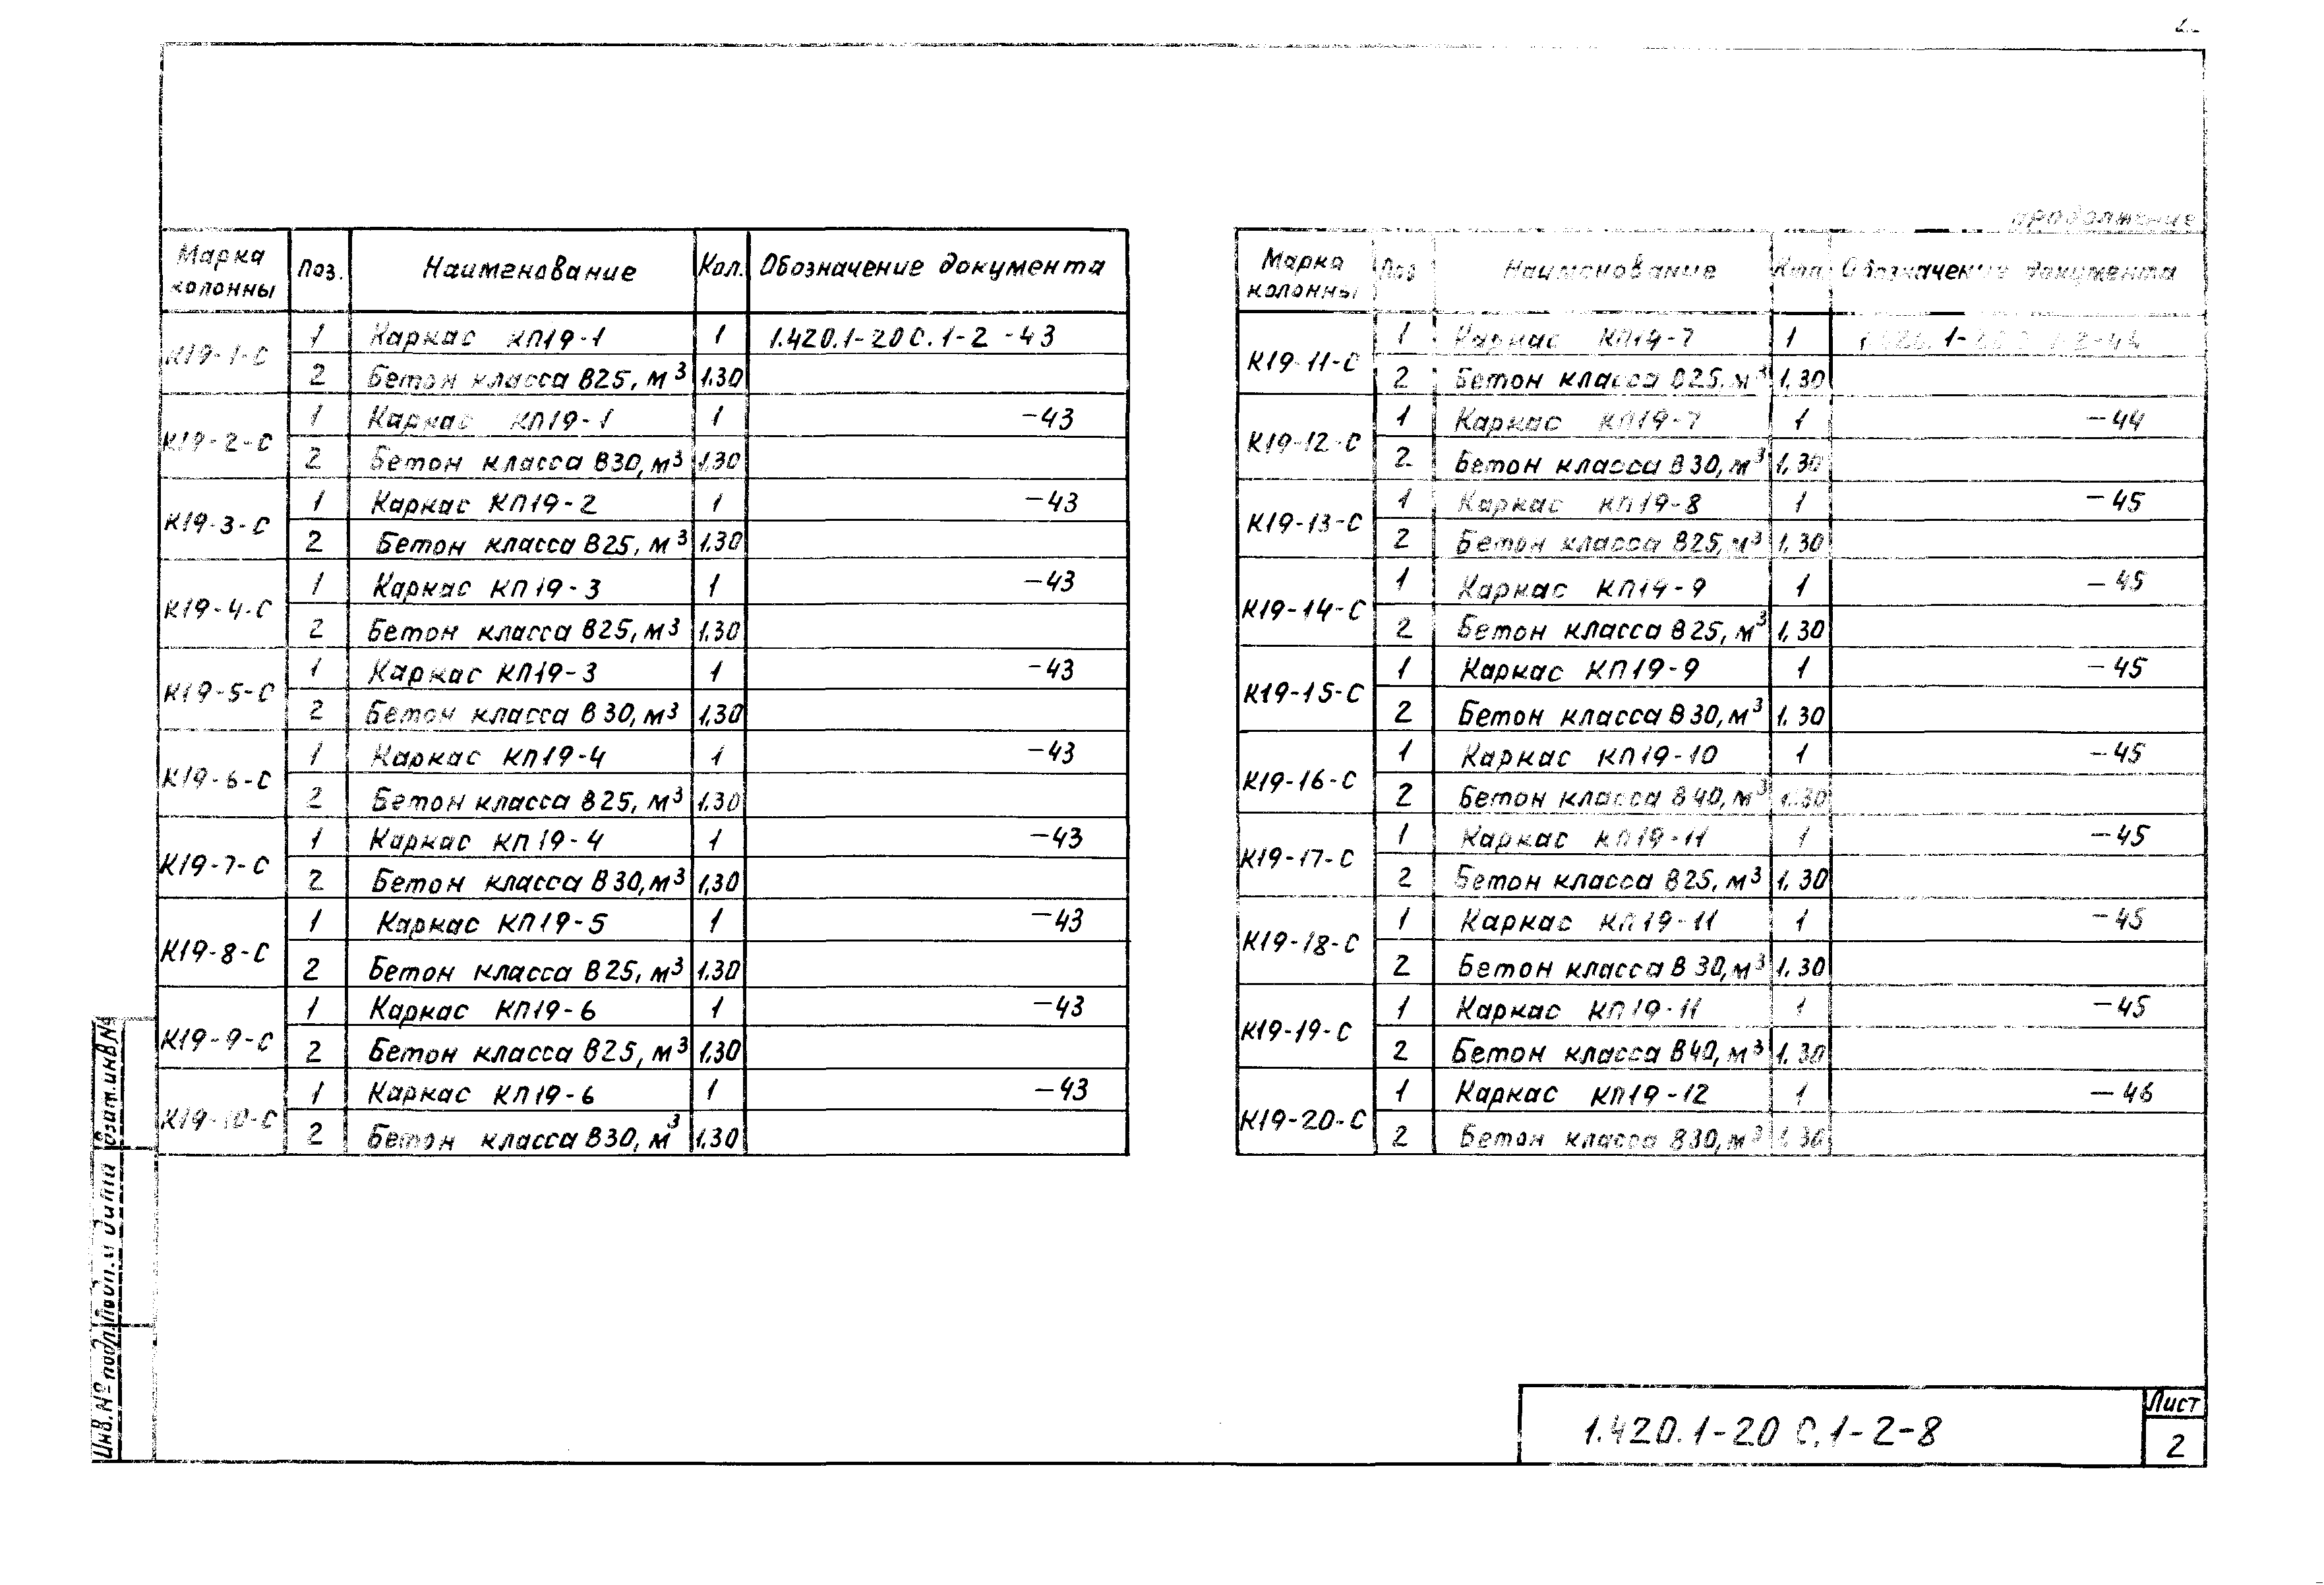 продолжение
Марка колонны Поз. Наименование Кол. Обозначение документа
К19-1-С 1 Каркас КП19-1 1 1.420.1-20С.1-2-43
2 Бетон класса В25, м³ 1.30
К19-2-С 1 Каркас КП19-1 1 -43
2 Бетон класса В30, м³ 1.30
К19-3-С 1 Каркас КП19-2 1 -43
2 Бетон класса В25, м³ 1.30
К19-4-С 1 Каркас КП19-3 1 -43
2 Бетон класса В25, м³ 1.30
К19-5-С 1 Каркас КП19-3 1 -43
2 Бетон класса В30, м³ 1.30
К19-6-С 1 Каркас КП19-4 1 -43
2 Бетон класса В25, м³ 1.30
К19-7-С 1 Каркас КП19-4 1 -43
2 Бетон класса В30, м³ 1.30
К19-8-С 1 Каркас КП19-5 1 -43
2 Бетон класса В25, м³ 1.30
К19-9-С 1 Каркас КП19-6 1 -43
2 Бетон класса В25, м³ 1.30
К19-10-С 1 Каркас КП19-6 1 -43
2 Бетон класса В30, м³ 1.30
Марка колонны Поз Наименование Кол. Обозначение документа
К19-11-С 1 Каркас КП19-7 1 1.420.1-20С.1-2-44
2 Бетон класса В25, м³ 1.30
К19-12-С 1 Каркас КП19-7 1 -44
2 Бетон класса В30, м³ 1.30
К19-13-С 1 Каркас КП19-8 1 -45
2 Бетон класса В25, м³ 1.30
К19-14-С 1 Каркас КП19-9 1 -45
2 Бетон класса В25, м³ 1.30
К19-15-С 1 Каркас КП19-9 1 -45
2 Бетон класса В30, м³ 1.30
К19-16-С 1 Каркас КП19-10 1 -45
2 Бетон класса В40, м³ 1.30
К19-17-С 1 Каркас КП19-11 1 -45
2 Бетон класса В25, м³ 1.30
К19-18-С 1 Каркас КП19-11 1 -45
2 Бетон класса В30, м³ 1.30
К19-19-С 1 Каркас КП19-11 1 -45
2 Бетон класса В40, м³ 1.30
К19-20-С 1 Каркас КП19-12 1 -46
2 Бетон класса В30, м³ 1.30
Инв. № подл. Подп. и дата Взам. инв №
1.420.1-20 С.1-2-8
Лист
2